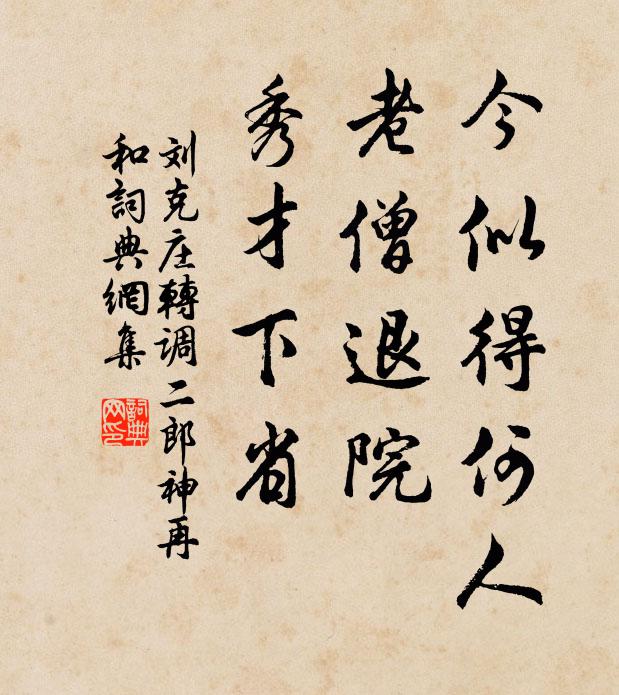 今似得何人
老僧退院
秀才下省
刘克庄轉调二郎神再
和詞典網集
詞典
网印